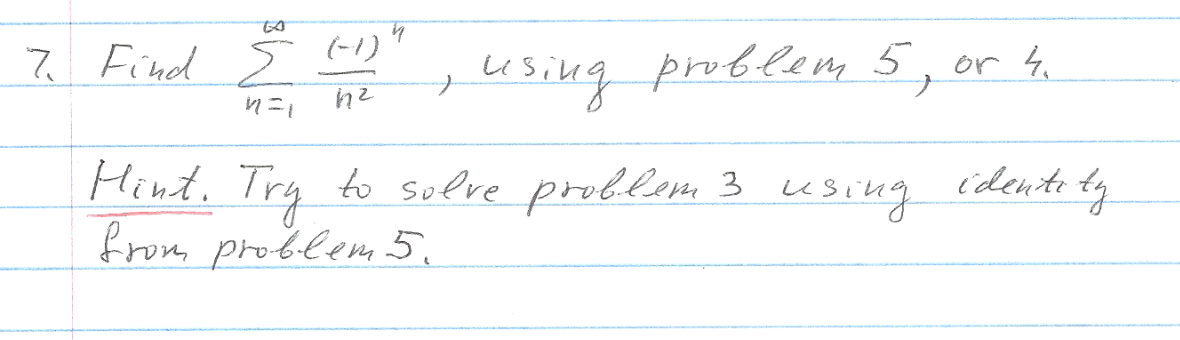 7. Find ∞∑n=1 (-1)^n/n², using problem 5, or 4.
Hint. Try to solve problem 3 using identity
from problem 5.